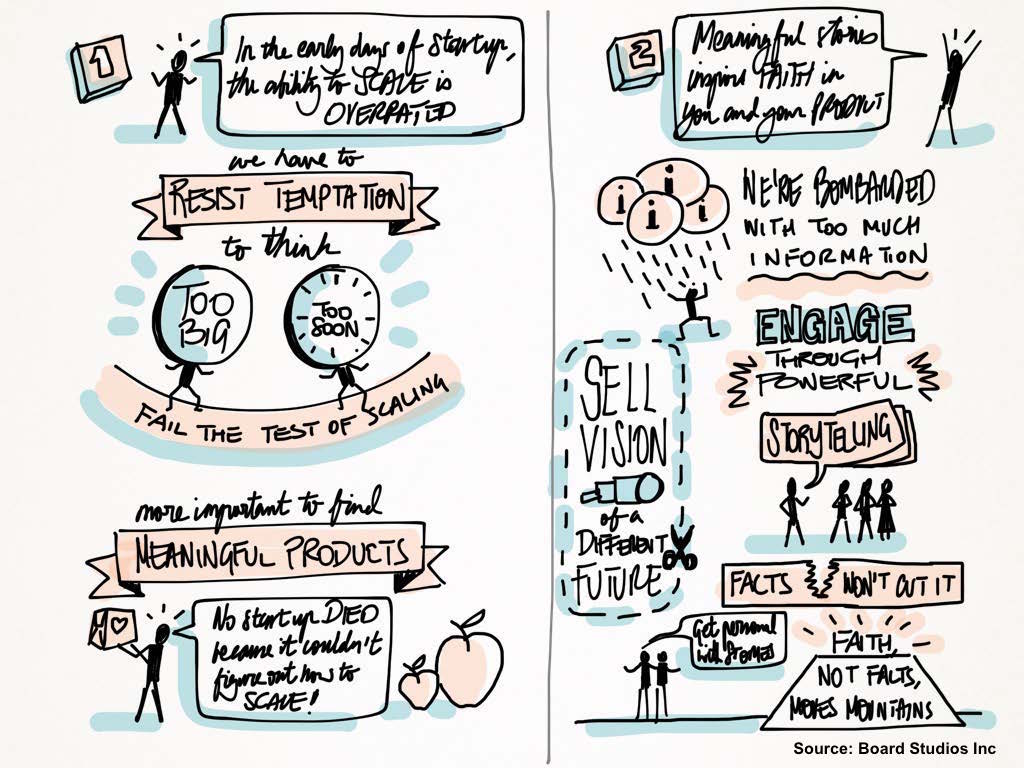 1
In the early days of startup,
the ability to SCALE is
OVERRATED
we have to
RESIST TEMPTATION
to think
TOO
BIG
TOO
SOON
FAIL THE TEST OF SCALING
more important to find
MEANINGFUL PRODUCTS
No startup DIED
because it couldn't
figure out how to
SCALE!
2
Meaningful stories
inspire FAITH in
you and your PRODUCT
i
i
i
i
WE'RE BOMBARDED
WITH TOO MUCH
INFORMATION
ENGAGE
THROUGH
POWERFUL
STORYTELLING
SELL
VISION
of a
DIFFERENT
FUTURE
FACTS WON'T CUT IT
Get personal
with STORIES
FAITH,
NOT FACTS,
MOVES MOUNTAINS
Source: Board Studios Inc